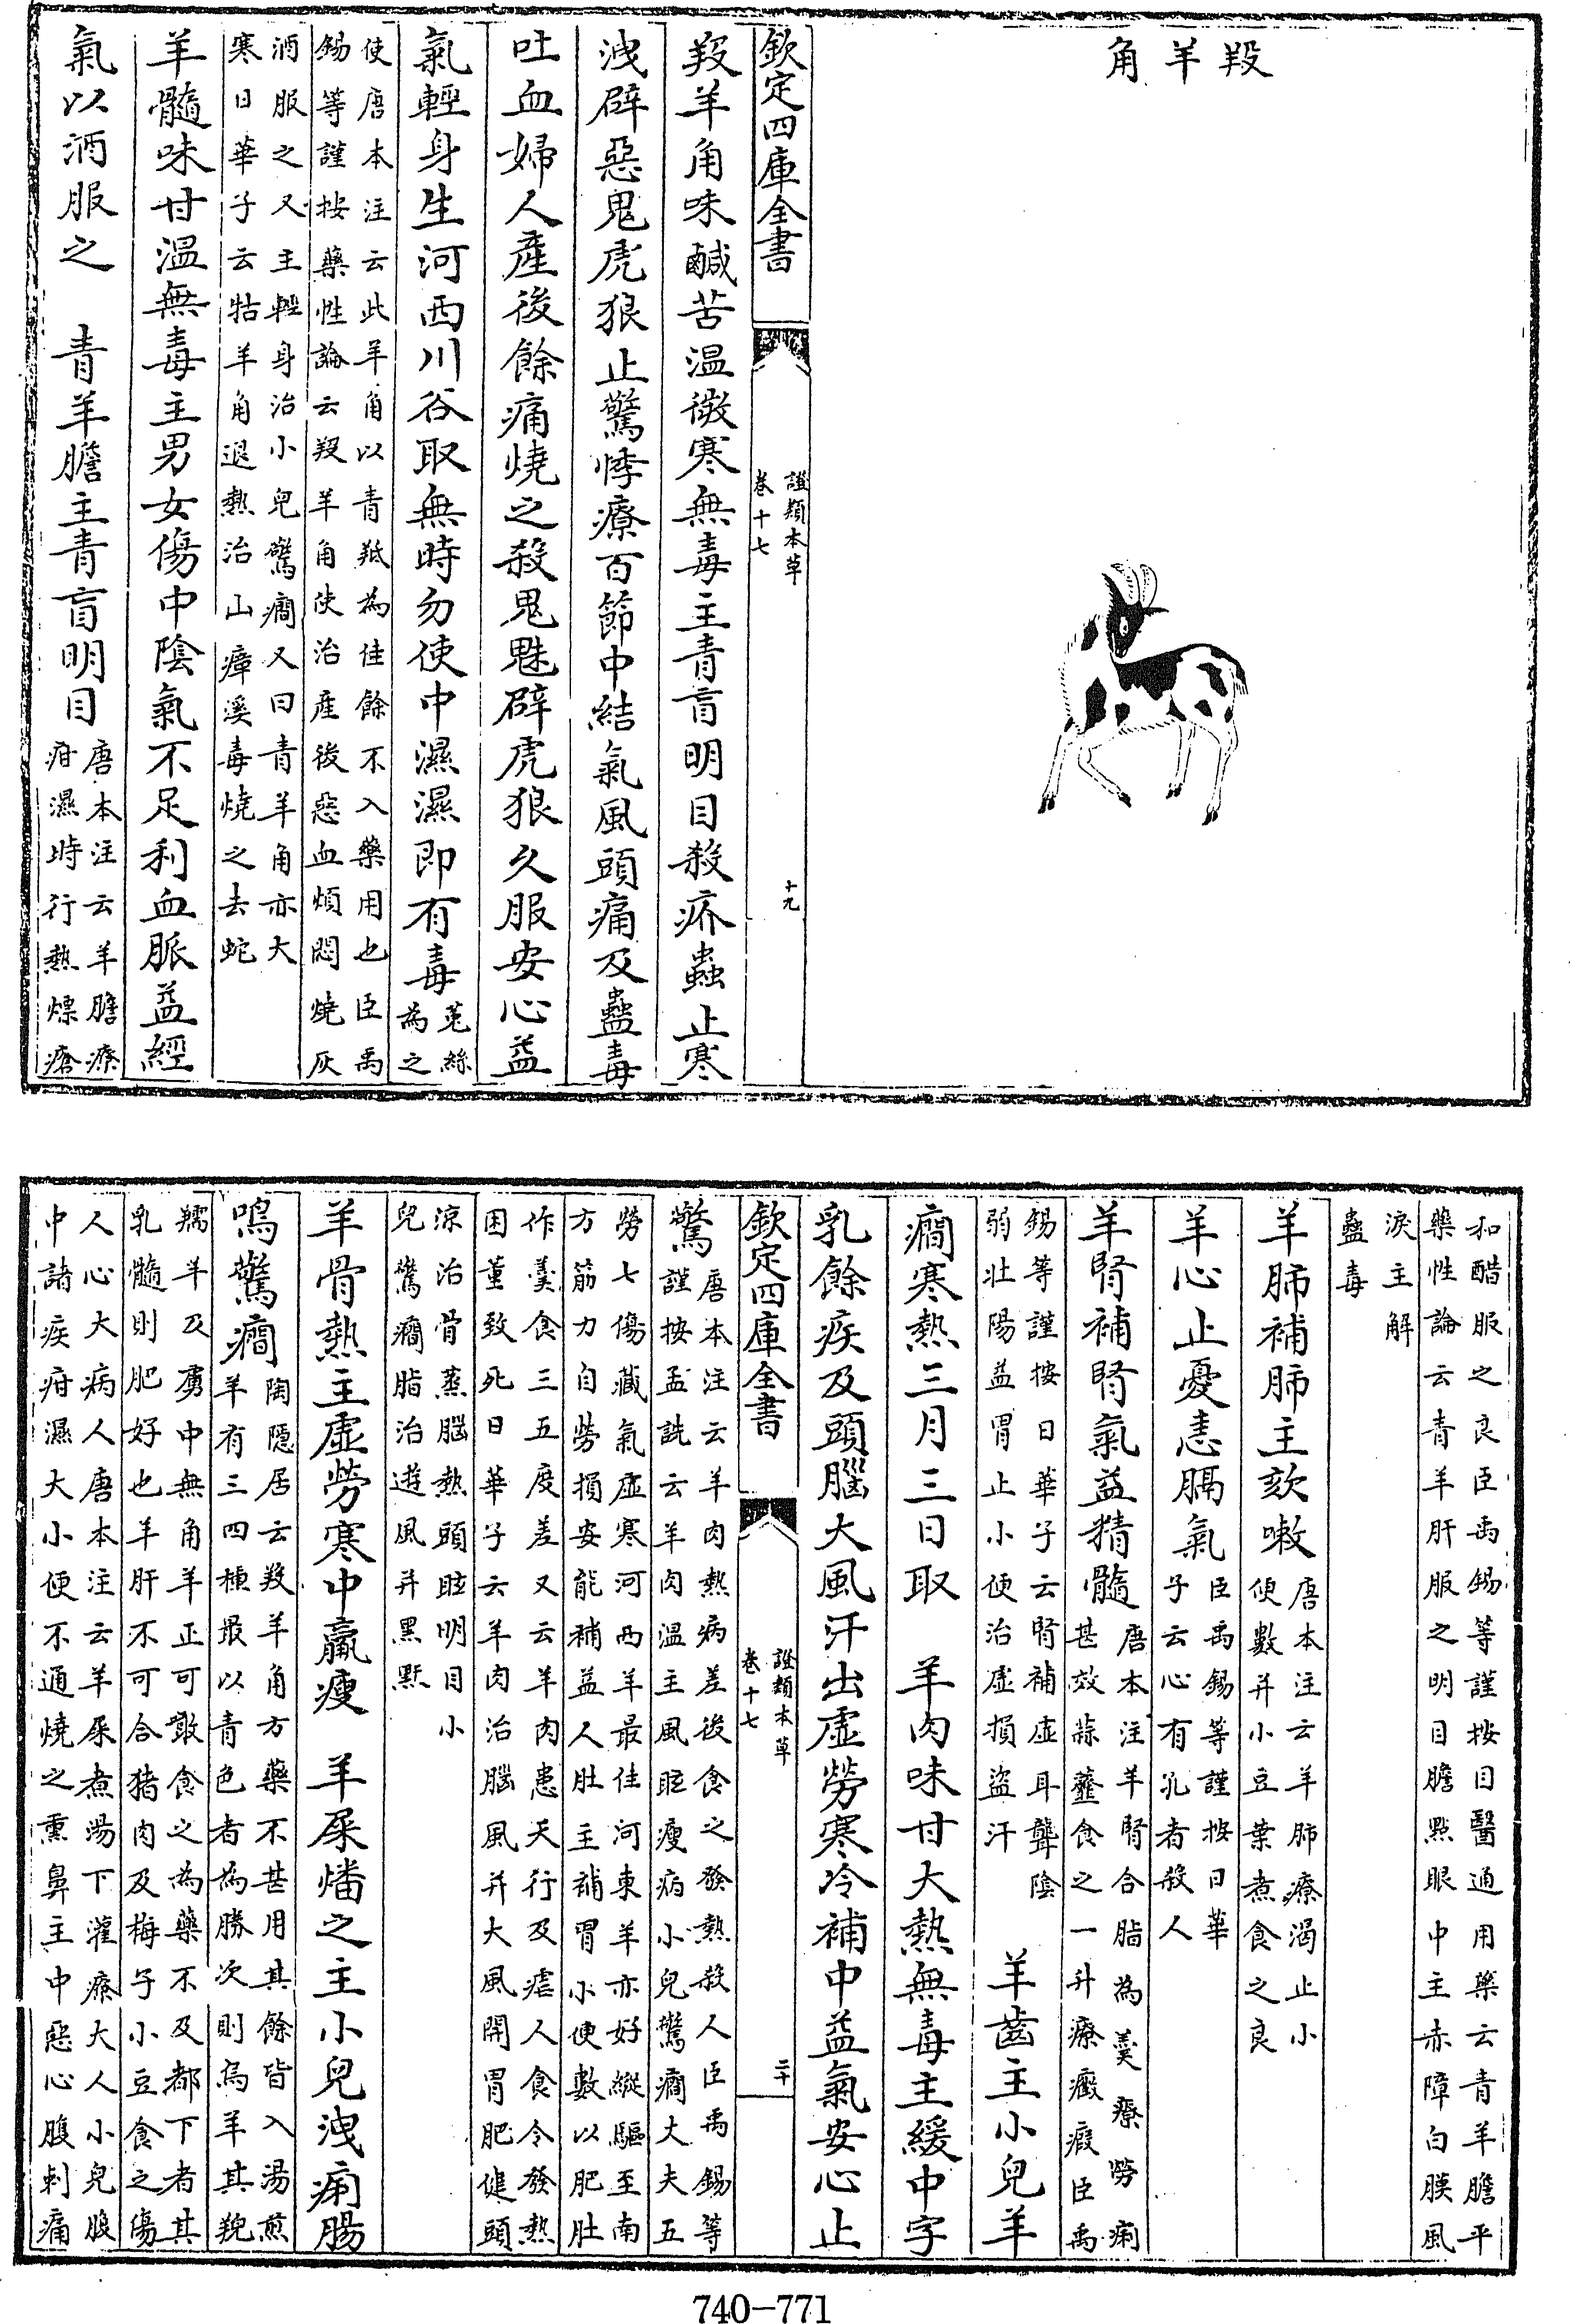 羖羊角
欽定四庫全書
證類本草
卷十七
十九
羖羊角味鹹苦温微寒無毒主青盲明目殺疥蟲止寒
洩辟惡鬼虎狼止驚悸療百節中結氣風頭痛及蠱毒
吐血婦人産後餘痛燒之殺鬼魅辟虎狼久服安心益
氣輕身生河西川谷取無時勿使中濕濕即有毒
菟絲
為之
使唐本注云此羊角以青羝為佳餘不入藥用也臣禹
錫等謹按藥性論云羖羊角使治産後惡血煩悶燒灰
酒服之又主輕身治小兒驚癎又曰青羊角亦大
寒日華子云牯羊角退熱治山瘴溪毒燒之去蛇
羊髓味甘温無毒主男女傷中陰氣不足利血脈益經
氣以酒服之　青羊膽主青盲明目
唐本注云羊膽療
疳濕時行熱熛瘡
和醋服之良臣禹錫等謹按日醫通用藥云青羊膽平
藥性論云青羊肝服之明目膽點眼中主赤障白膜風
淚主解
蠱毒
羊肺補肺主欬嗽
唐本注云羊肺療渴止小
便數并小豆葉煮食之良
羊心止憂恚膈氣
臣禹錫等謹按日華
子云心有孔者殺人
羊腎補腎氣益精髓
唐本注羊腎合脂為羹療勞痢
甚效蒜虀食之一升療癥瘕臣禹
錫等謹按日華子云腎補虛耳聾陰
弱壯陽益胃止小便治虛損盜汗
羊齒主小兒羊
癎寒熱三月三日取　羊肉味甘大熱無毒主緩中字
乳餘疾及頭腦大風汗出虛勞寒冷補中益氣安心止
欽定四庫全書
證類本草
卷十七
二十
驚
唐本注云羊肉熱病差後食之發熱殺人臣禹錫等
謹按孟詵云羊肉温主風眩瘦病小兒驚癎丈夫五
勞七傷藏氣虛寒河西羊最佳河東羊亦好縱驅至南
方筋力自勞損安能補益人肚主補胃小便數以肥肚
作羹食三五度差又云羊肉患天行及瘧人食令發熱
困重致死日華子云羊肉治腦風并大風開胃肥健頭
涼治骨蒸腦熱頭眩明目小
兒驚癎脂治遊風并黑䵟
羊骨熱主虛勞寒中羸瘦　羊屎燔之主小兒洩痢腸
鳴驚癎
陶隱居云羖羊角方藥不甚用其餘皆入湯煎
羊有三四種最以青色者為勝次則烏羊其羖
羺羊及虜中無角羊正可敢食之為藥不及都下者其
乳髓則肥好也羊肝不可合猪肉及梅子小豆食之傷
人心大病人唐本注云羊屎煮湯下灌療大人小兒腹
中諸疾疳濕大小便不通燒之熏鼻主中惡心腹刺痛
740-771